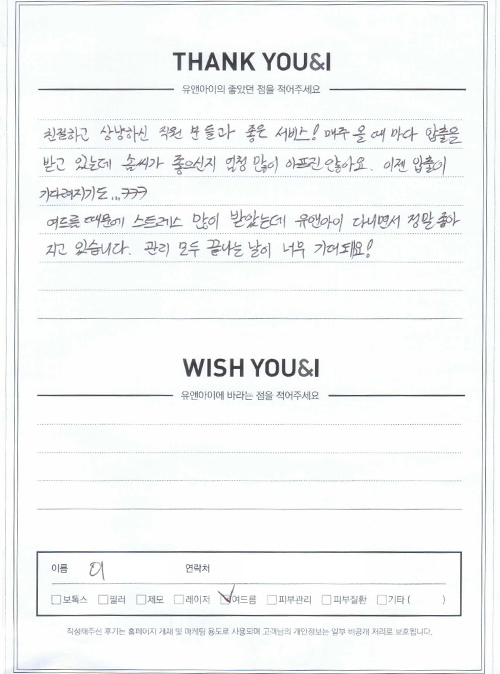 THANK YOU&I
유앤아이의 좋았던 점을 적어주세요
친절하고 상냥하신 직원 분들과 좋은 서비스! 매주 올 때 마다 압출을
받고 있는데 솜씨가 좋으신지 엄청 많이 아프진 않아요. 이젠 압출이
기다려지기도...ㅋㅋㅋ
여드름 때문에 스트레스 많이 받았는데 유앤아이 다니면서 정말 좋아
지고 있습니다. 관리 모두 끝나는 날이 너무 기대돼요!
WISH YOU&I
유앤아이에 바라는 점을 적어주세요
이름 이 연락처
보톡스 필러 제모 레이저 여드름 피부관리 피부질환 기타 ( )
작성해주신 후기는 홈페이지 게재 및 마케팅 용도로 사용되며 고객님의 개인정보는 일부 비공개 처리로 보호됩니다.